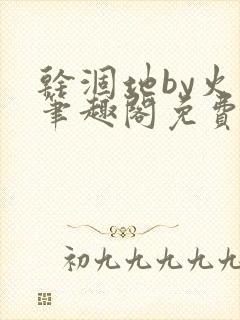 骀涸地by火
笔趣阁免費
初九九九九九